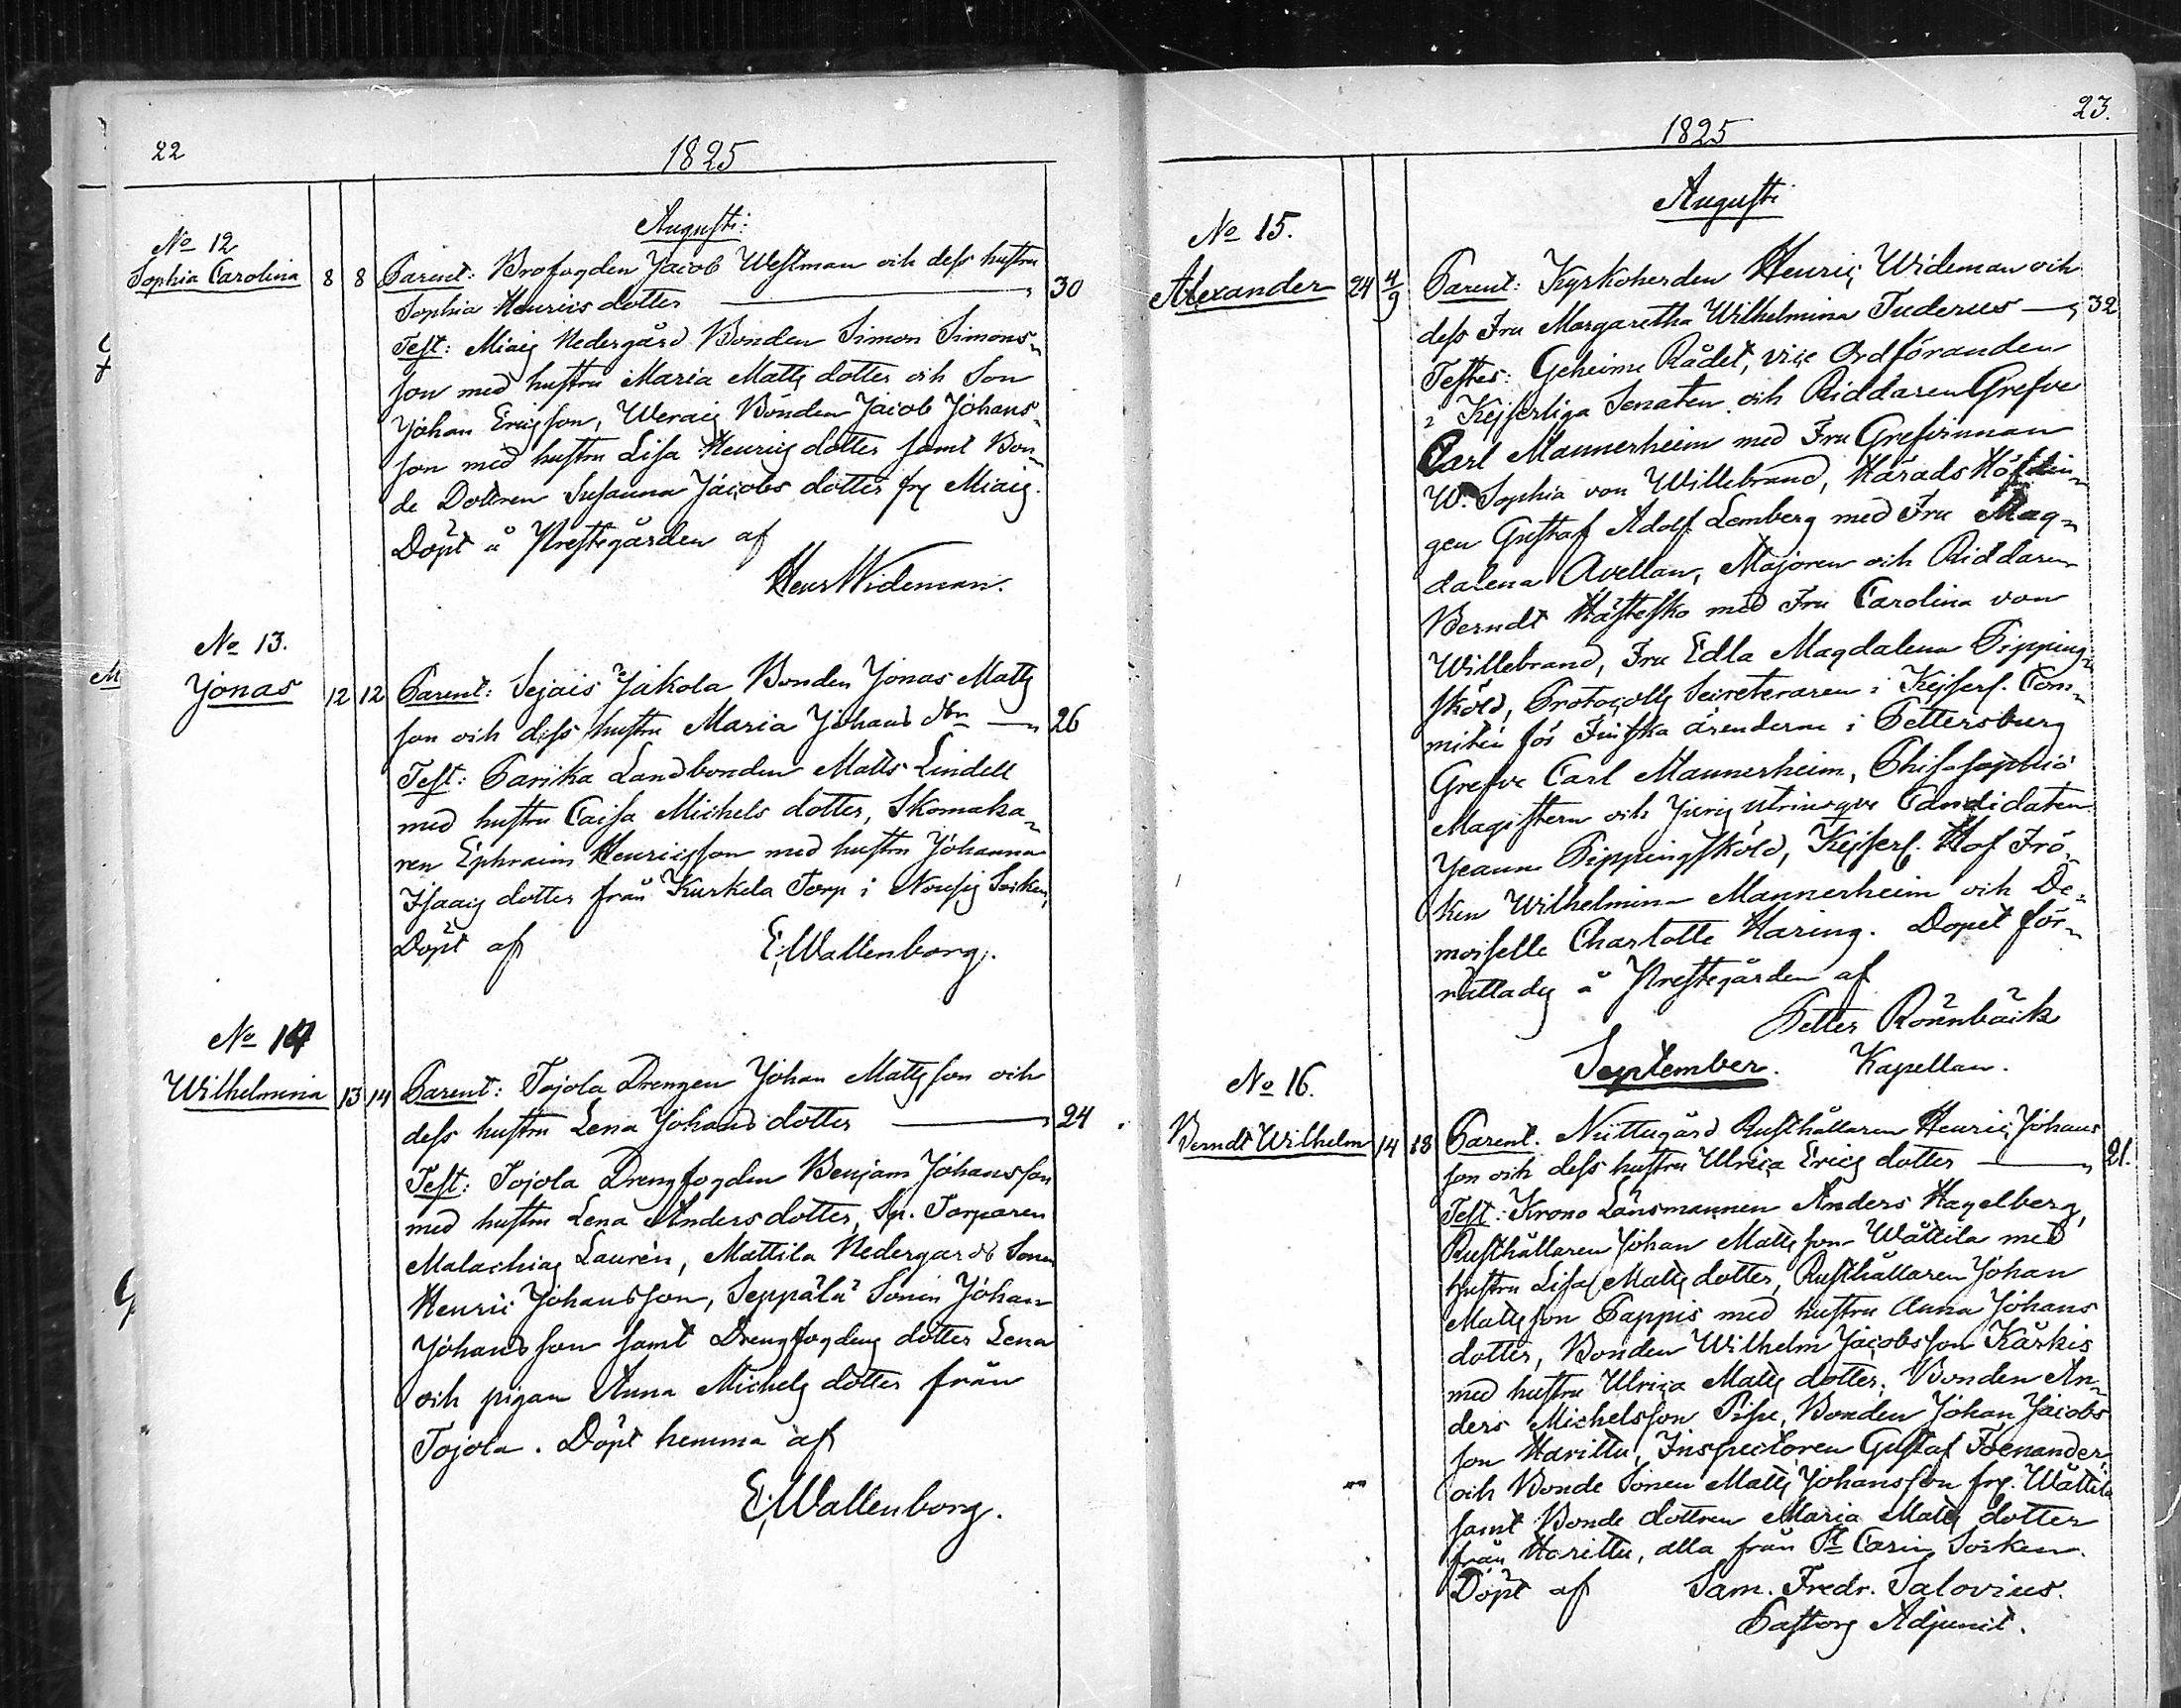 22
1825
Augusti:
No 12
Sophia Carolina 8 8 Parent: Brofogden Jacob Westman och dess hustru
Sophia Henrics dotter 30
Test: Miais Nedergård Bonden Simon Simons-
son med hustru Maria Matts dotter och Son
Johan Ericsson, Werais Bonden Jacob Johans-
son med hustru Lisa Henrics dotter samt Bon-
de Dottren Susanna Jacobs dotter frn Miais.
Döpt å Prestegården af
Henr Wideman.
No 13.
Jonas 12 12 Parent: Sejais Jakola Bonden Jonas Matts
son och dess hustru Maria Johans dtr 26
Test: Parika Landbonden Matts Lindell
med hustru Caisa Michels dotter, Skomaka-
ren Ephraim Henricsson med hustru Johanna
Isaacs dotter från Kurkela Torp i Nousis Socken,
Döpt af E. Wallenborg.
No 14
Wilhelmina 13 14 Parent: Tojola Drengen Johan Mattsson och
dess hustru Lena Johans dotter 24
Test: Tojola Drengfogden Benjam Johansson
med hustru Lena Anders dotter, Sp. Torparen
Malachias Laurén, Mattila Nedergårds Sonen
Henric Johansson, Seppälä Sonen Johan
Johansson samt Drengfogdens dotter Lena
och pigan Anna Michels dotter från
Tojola. Döpt hemma af
E. Wallenborg.
23.
1825
Augusti
No 15.
Alexander 24 4/9 Parent: Kyrkoherden Henric Wideman och
dess Fru Margaretha Wilhelmina Tuderus 32
Testes: Geheime Rådet, vice Ordföranden
i Kejserliga Senaten och Riddaren Grefve
Carl Mannerheim med Fru Grefvinnan
W. Sophia von Willebrand, Härads Höfdin-
gen Gustaf Adolf Lemberg med Fru Mag-
dalena Avellan, Majoren och Riddaren
Berndt Hästesko med Fru Carolina von
Willebrand, Fru Edla Magdalena Pipping-
sköld, Protocolls Secreteraren i Kejserl. Com-
mitén för Finska ärenderne i Pettersburg
Grefve Carl Mannerheim, Philosophiæ
Magistern och Juris utriusque Candidaten
Jeanne Pippingsköld, Kejserl. Hof Frö-
ken Wilhelmina Mannerheim och De-
moiselle Charlotte Haring. Dopet för-
rättades å Prestegården af
Petter Rönnbäck
Kapellan.
September.
No 16.
Berndt Wilhelm 14 18 Parent. Nuttugård Rusthållaren Henric Johans
son och dess hustru Ulrica Erics dotter 21.
Test: Krono Länsmannen Anders Hagelberg,
Rusthållaren Johan Mattsson Wättilä med
hustru Lisa Matts dotter, Rusthållaren Johan
Mattsson Pappis med hustru Anna Johans
dotter, Bonden Wilhelm Jacobsson Kärkis
med hustru Ulrica Matts dotter, Bonden An-
ders Michelsson Pispe, Bonden Johan Jacobs
son Harittu, Inspectoren Gustaf Foenander
och Bonde Sonen Matts Johansson frn. Wättilä
samt Bonde dottren Maria Matts dotter
från Harittu, alla från St Carins Socken.
Döpt af Sam. Fredr. Salovius.
Pastors Adjunct.